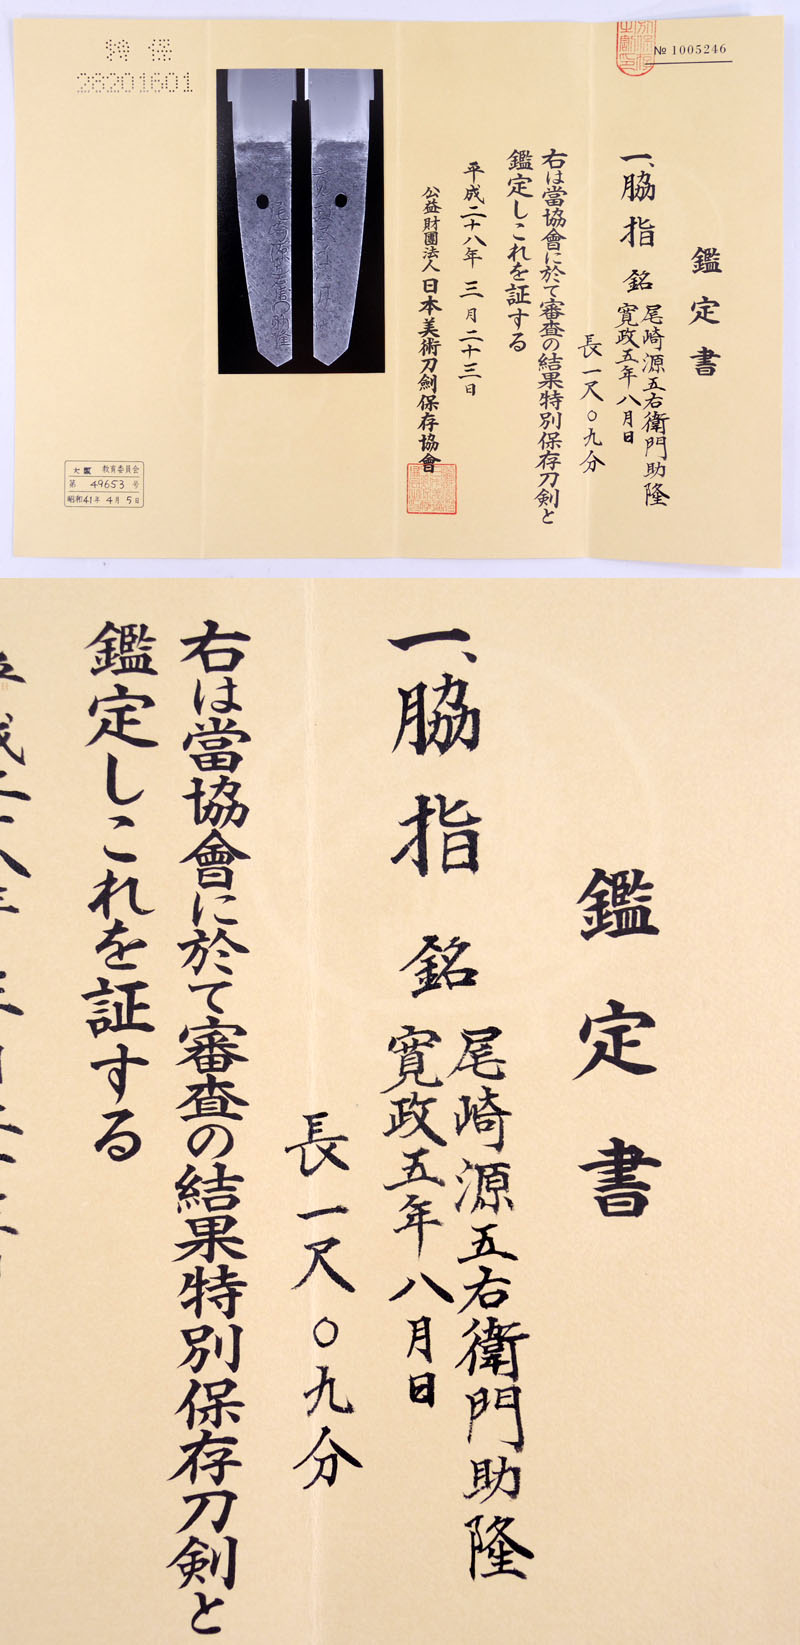 特 保
28201601
№ 1005246
鑑定書
一、脇指 銘 尾崎源五右衛門助隆
寛政五年八月日
長一尺〇九分
右は當協會に於て審査の結果特別保存刀剣と
鑑定しこれを証する
平成二十八年 三月二十三日
公益財團法人 日本美術刀劍保存協會
大阪 教育委員会
第 49653 号
昭和41年 4月 5日
鑑定書
一、脇指 銘 尾崎源五右衛門助隆
寛政五年八月日
長一尺〇九分
右は當協會に於て審査の結果特別保存刀剣と
鑑定しこれを証する